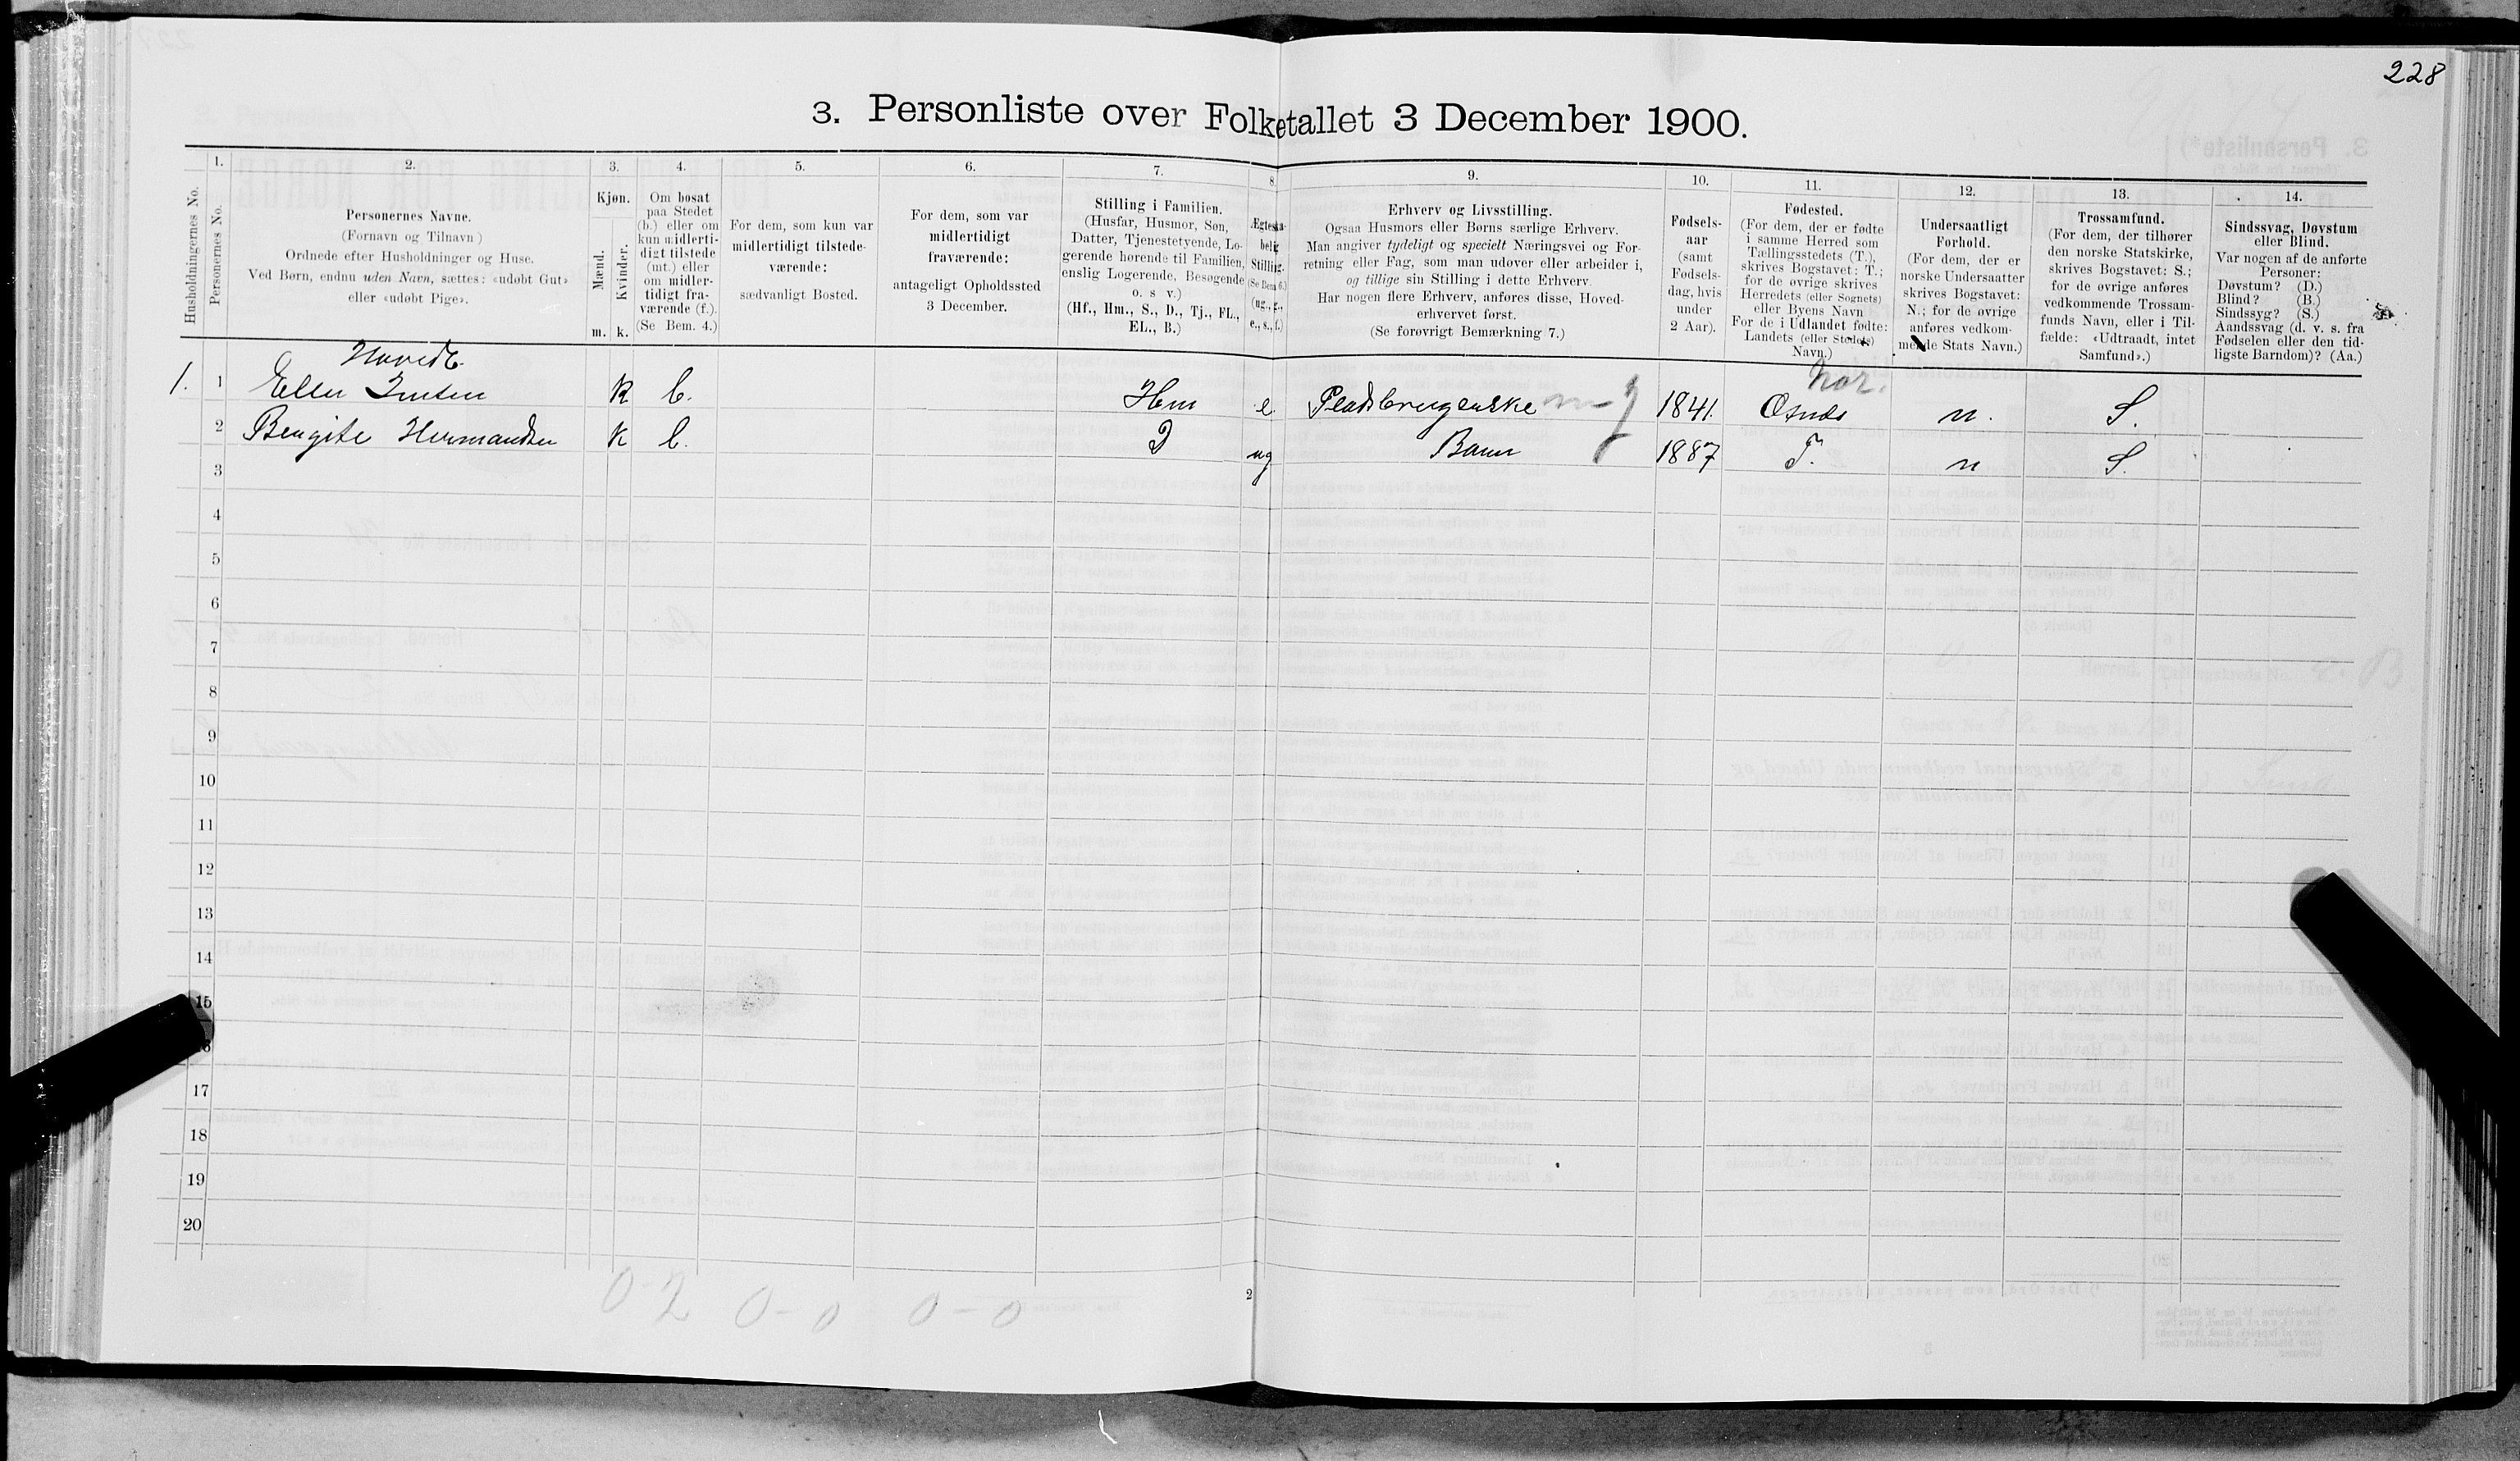 228
3. Personliste over Folketallet 3 December 1900.
Husholdningernes No.
1.
Personernes No.
2.
Personernes Navne.
(Fornavn og Tilnavn)
Ordnede efter Husholdninger og Huse.
Ved Børn, endnu uden Navn, sættes: «udøbt Gut»
eller «udøbt Pige».
3.
Kjøn.
Mænd.
Kvinder.
m. k.
4.
Om bosat
paa Stedet
(b.) eller om
kun midlerti-
digt tilstede
(mt.) eller
om midler-
tidigt fra-
værende (f.).
(Se Bem. 4.)
5.
For dem, som kun var
midlertidigt tilstede-
værende:
sædvanligt Bosted.
6.
For dem, som var
midlertidigt
fraværende:
antageligt Opholdssted
3 December.
7.
Stilling i Familien.
(Husfar, Husmor, Søn,
Datter, Tjenestetyende, Lo-
gerende hørende til Familien,
enslig Logerende, Besøgende
o. s v.)
(Hf., Hm., S., D., Tj., FL.,
EL., B.)
8.
Ægteska-
belig
Stilling.
(Se Bem 6.)
(ug., g.,
e., s., f.)
9.
Erhverv og Livsstilling.
Ogsaa Husmors eller Børns særlige Erhverv.
Man angiver tydeligt og specielt Næringsvei og For-
retning eller Fag, som man udøver eller arbeider i,
og tillige sin Stilling i dette Erhverv.
Har nogen flere Erhverv, anføres disse, Hoved-
erhvervet først.
(Se forøvrigt Bemærkning 7.)
10.
Fødsels-
aar
(samt
Fødsels-
dag, hvis
under
2 Aar).
11.
Fødested.
(For dem, der er fødte
i samme Herred som
Tællingsstedets (T.),
skrives Bogstavet: T.;
for de øvrige skrives
Herredets (eller Sognets)
eller Byens Navn
For de i Udlandet fødte:
Landets (eller Stedets)
Navn.)
12.
Undersaatligt
Forhold.
(For dem, der er
norske Undersaatter
skrives Bogstavet:
N.; for de øvrige
anføres vedkom-
mende Stats Navn.)
13.
Trossamfund.
(For dem, der tilhører
den norske Statskirke,
skrives Bogstavet: S.;
for de øvrige anføres
vedkommende Trossam-
funds Navn, eller i Til-
fælde: «Udtraadt, intet
Samfund».)
14.
Sindssvag, Døvstum
eller Blind.
Var nogen af de anførte
Personer:
Døvstum? (D.)
Blind? (B.)
Sindssyg? (S.)
Aandssvag (d. v. s. fra
Fødselen eller den tid-
ligste Barndom)? (Aa.)
1. 1 Ellen k b. Hm e. 1841. n. S.
2 Bengite Hermandsen k b. D ug Barn 1887 T. n S.
3
4
5
6
7
8
9
10
11
12
13
14
15
17
18
19
20
0-2 0-0 0-0
2